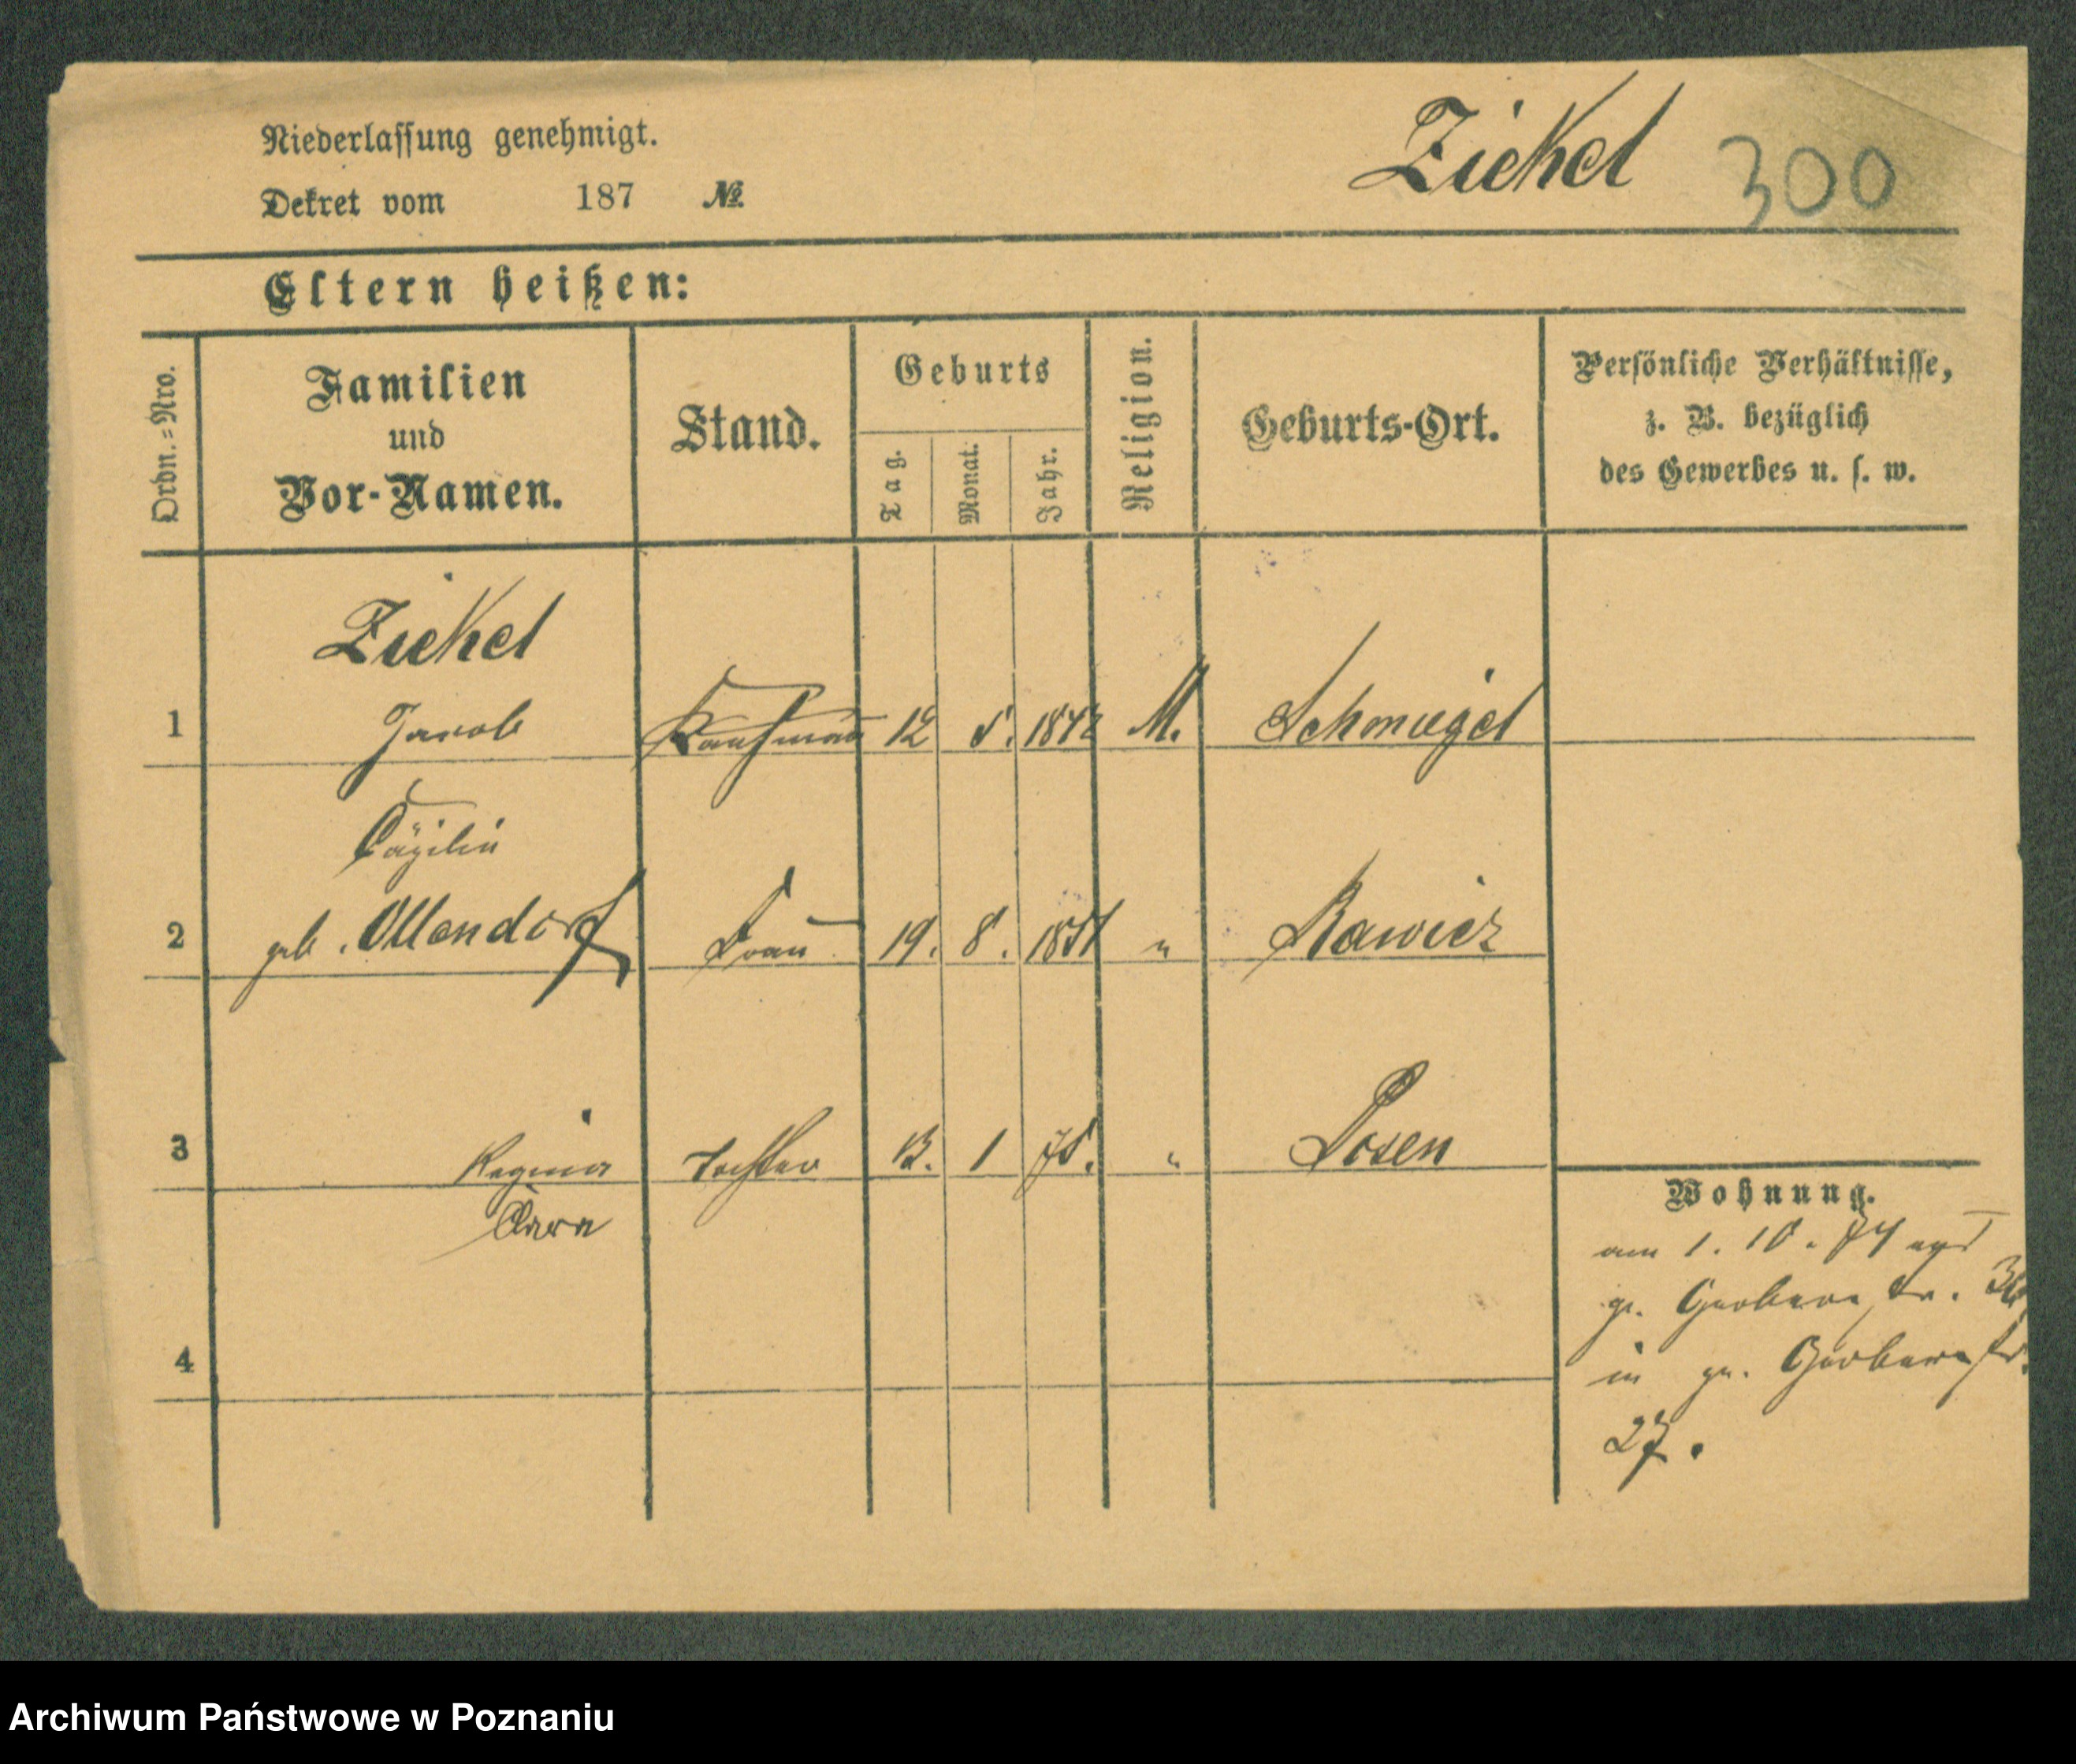 Niederlassung genehmigt.
Dekret vom 187 №
Ziekel 300
Eltern heißen:
Ordn.=Nro.
Familien und Vor-Namen.
Stand.
Geburts
Tag.
Monat.
Jahr.
Religion.
Geburts-Ort.
Persönliche Verhältnisse,
z. B. bezüglich
des Gewerbes u. s. w.
Ziekel
1 Jacob Kaufmann 12 5. 1842 M. Schmiegel
Cäzilie
2 geb. Ollendorf Frau 19. 8. 1851 " Rawicz
3 Regina Tochter 13. 1 75. " Posen
Clara
4
Wohnung.
am 1. 10. 74
gr. Gerberstr. 36
in gr. Gerberstr.
27.
Archiwum Państwowe w Poznaniu